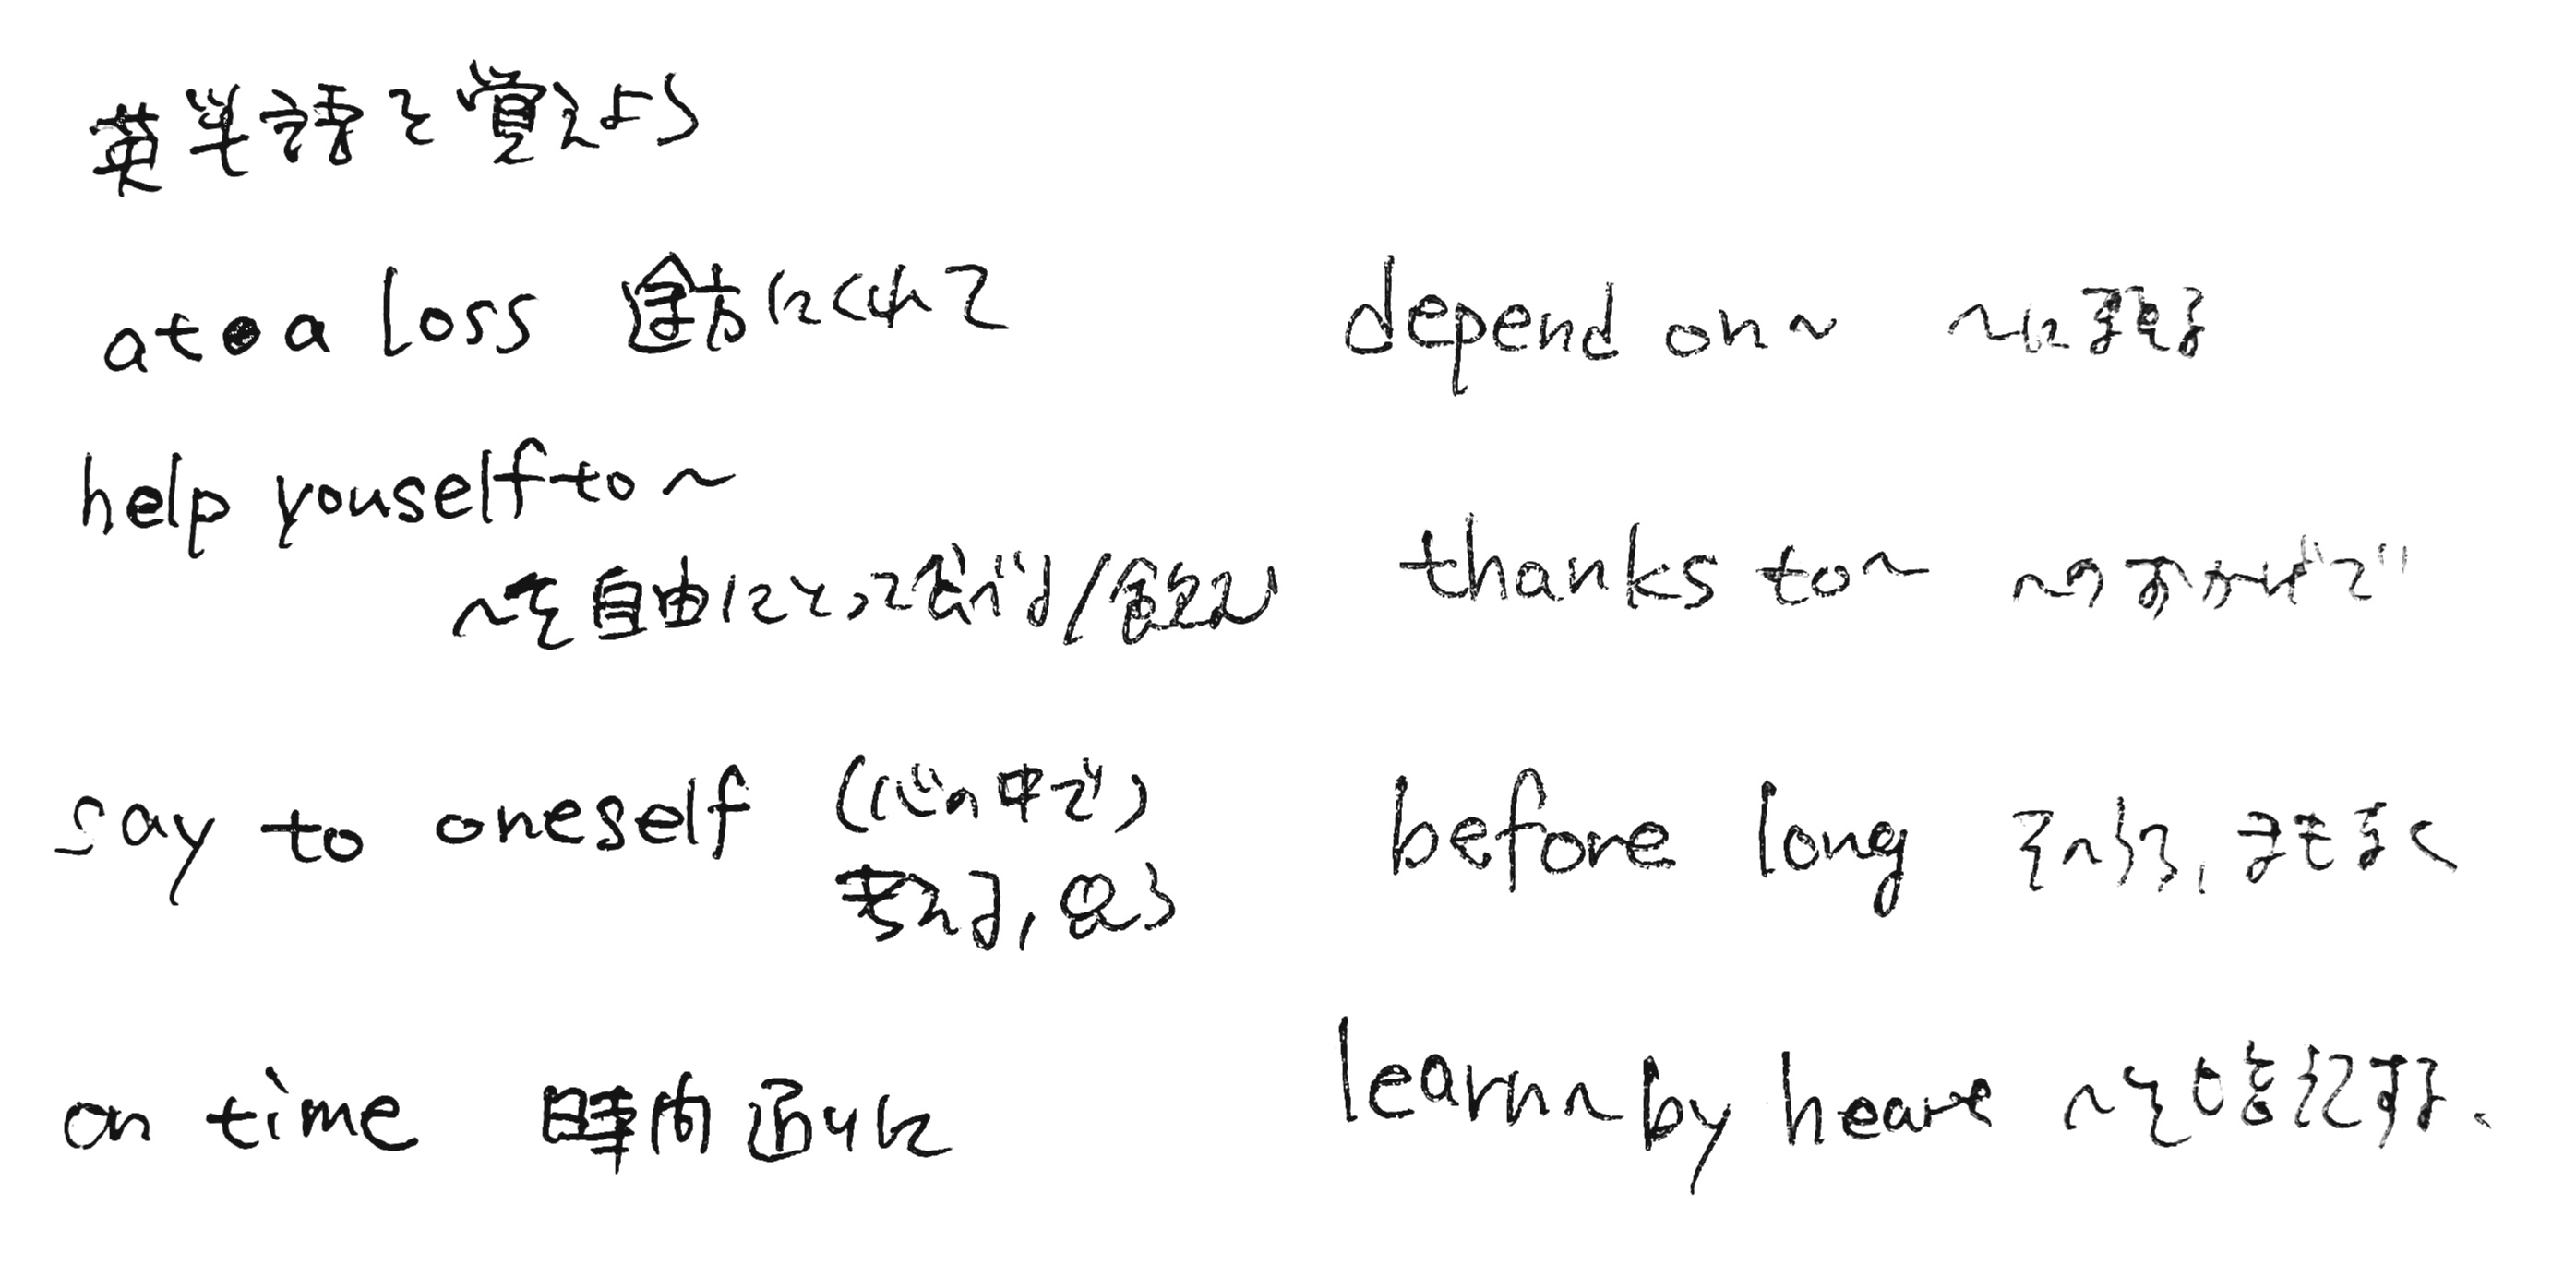 英単語を覚えよう
at a loss 途方にくれて
help youself to ~
~を自由にとって食べる/飲む
say to oneself (心の中で)
考える, 思う
on time 時間通りに
depend on ~ ~に頼る
thanks to ~ ~のおかげで
before long そのうち, まもなく
learn ~ by heart ~を暗記する、